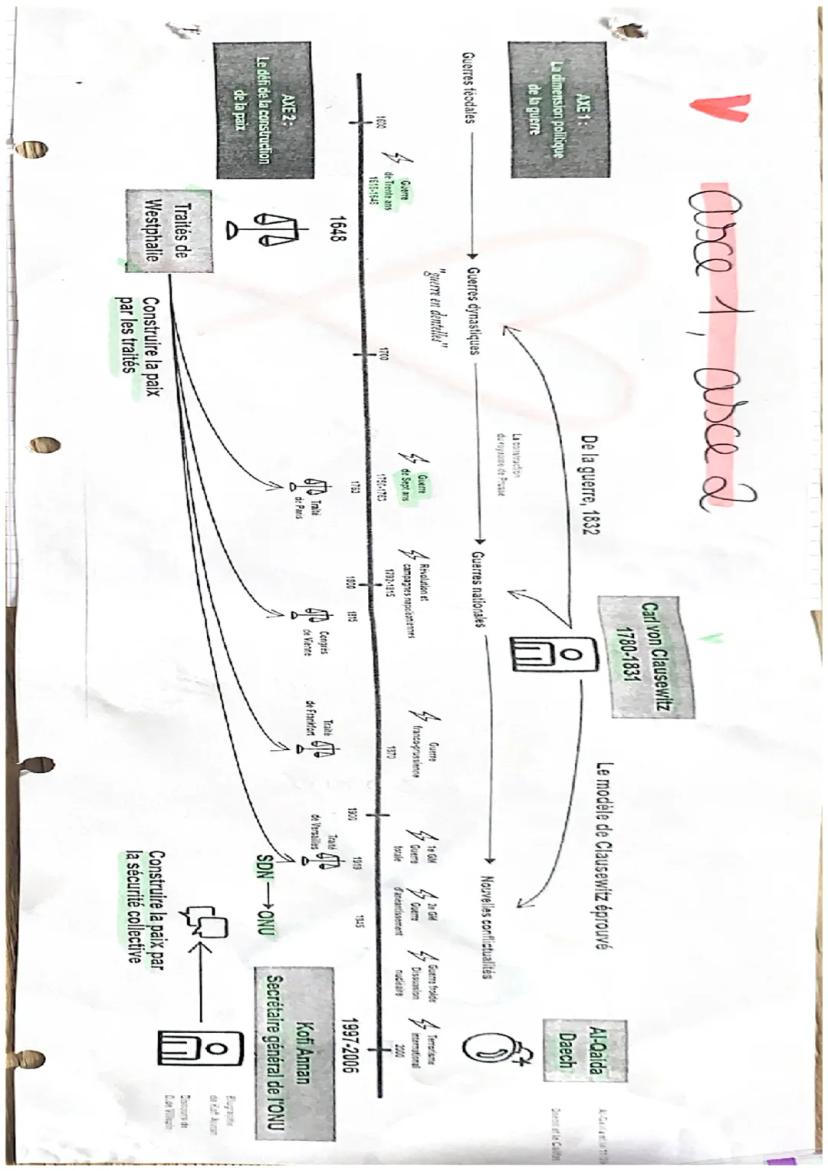 axe 1, axe 2
Carl von Clausewitz
1780-1831
AXE 1 :
La dimension politique
de la guerre
De la guerre, 1832
Le modèle de Clausewitz éprouvé
Al-Qaida
Daech
Guerres féodales
Guerres dynastiques
"guerre en dentelles"
La construction
du royaume de Prusse
Guerres nationales
Nouvelles conflictualités
Guerre
de Trente ans
1618-1648
Guerre
de Sept ans
1756-1763
Révolution et
campagnes napoléoniennes
1792-1815
Guerre
franco-prussienne
1870
1e GM
Guerre
totale
2e GM
Guerre
d'anéantissement
Guerre froide
Dissuasion
nucléaire
Terrorisme
international
1600
1700
1800
1900
2000
AXE 2 :
Le défi de la construction
de la paix
1648
Traités de
Westphalie
1763
Traité
de Paris
1815
Congrès
de Vienne
Traité
de Frankfort
1919
Traité
de Versailles
1945
SDN → ONU
1997-2006
Kofi Annan
Secrétaire général de l'ONU
Construire la paix
par les traités
Construire la paix par
la sécurité collective
Biographie
de Kofi Annan
Discours de
D. de Villepin